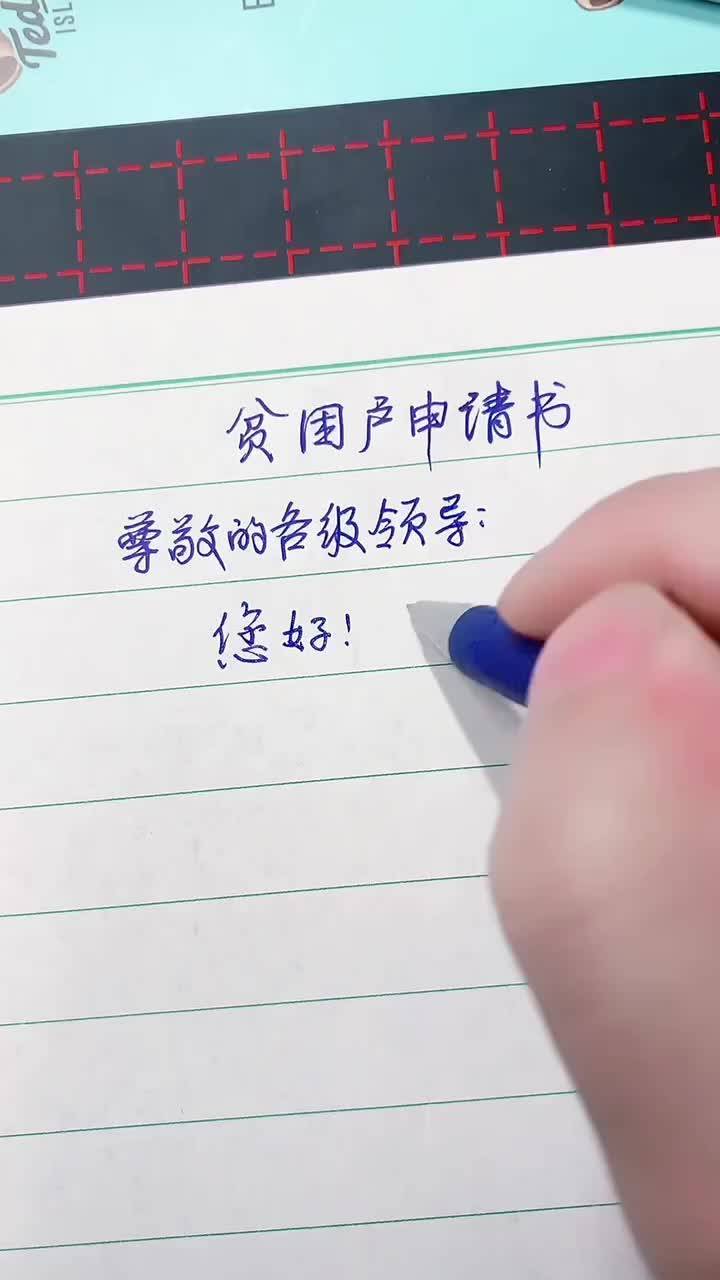 Ted
ISL
贫困户申请书
尊敬的各级领导：
您好！